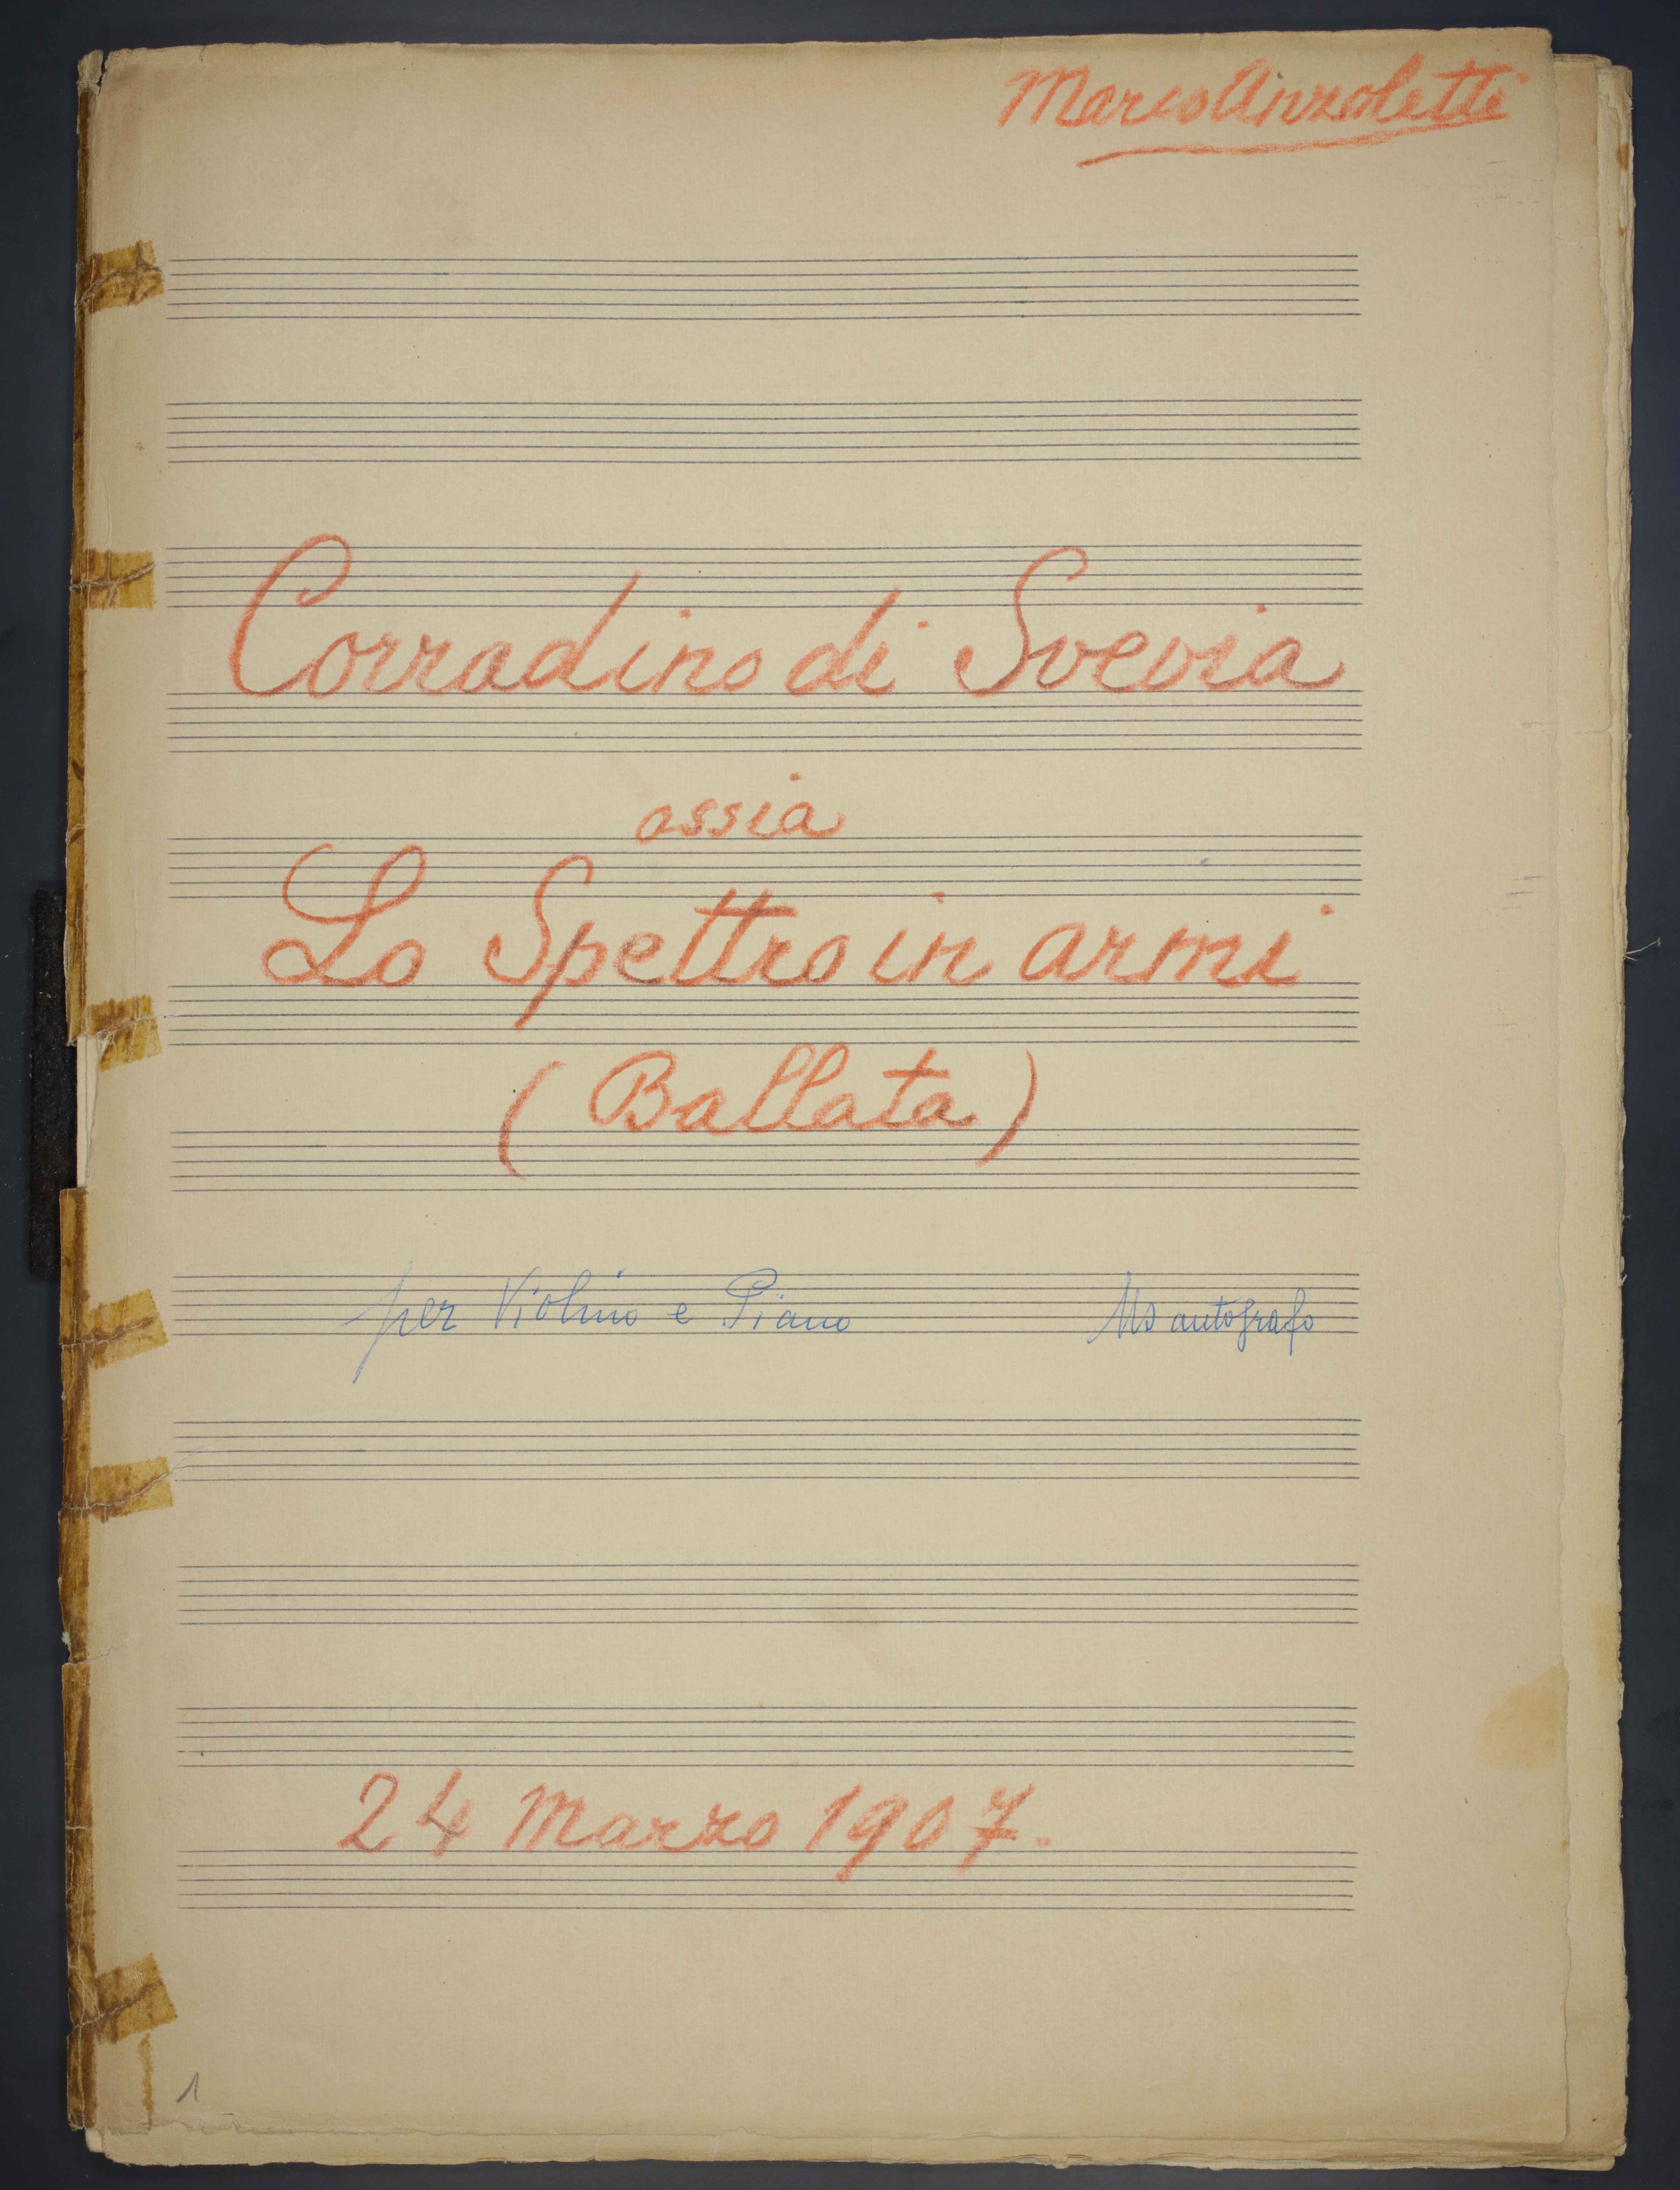 Marco Anzoletti
Corradino di Svevia
ossia
Lo Spettro in armi
(Ballata)
per Violino e Piano Ms autografo
24 Marzo 1907.
1